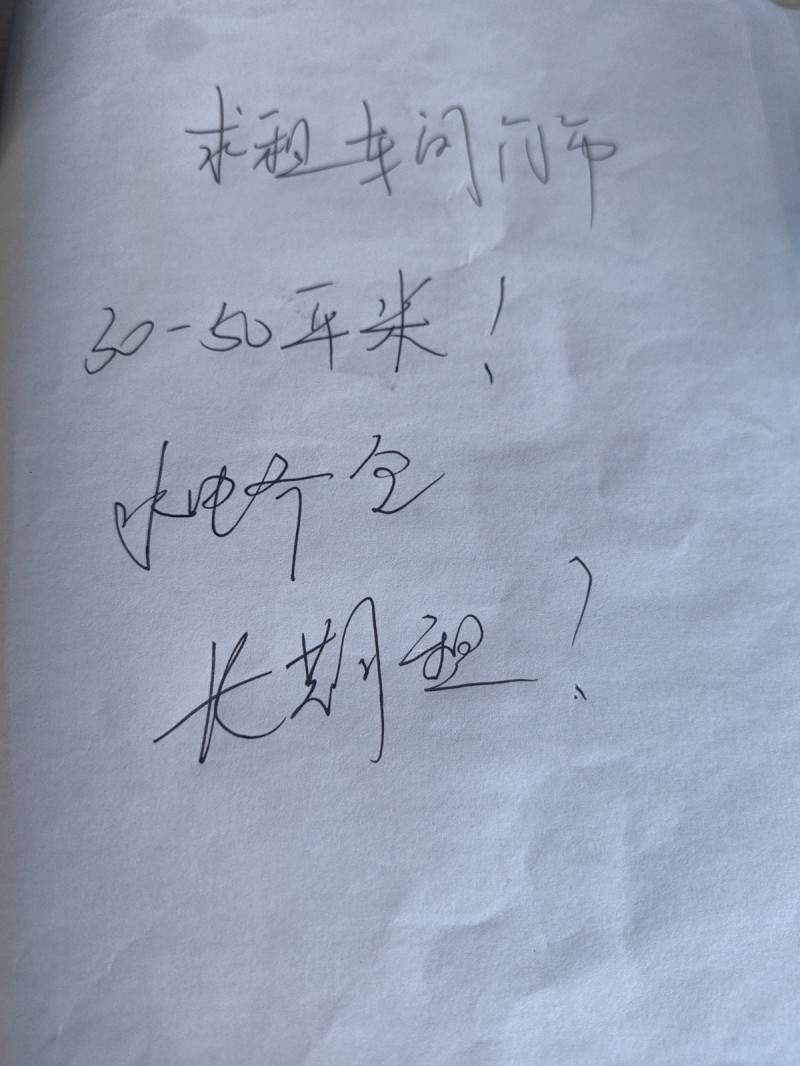 求租车间门市
30-50平米!
水电齐全
长期租?